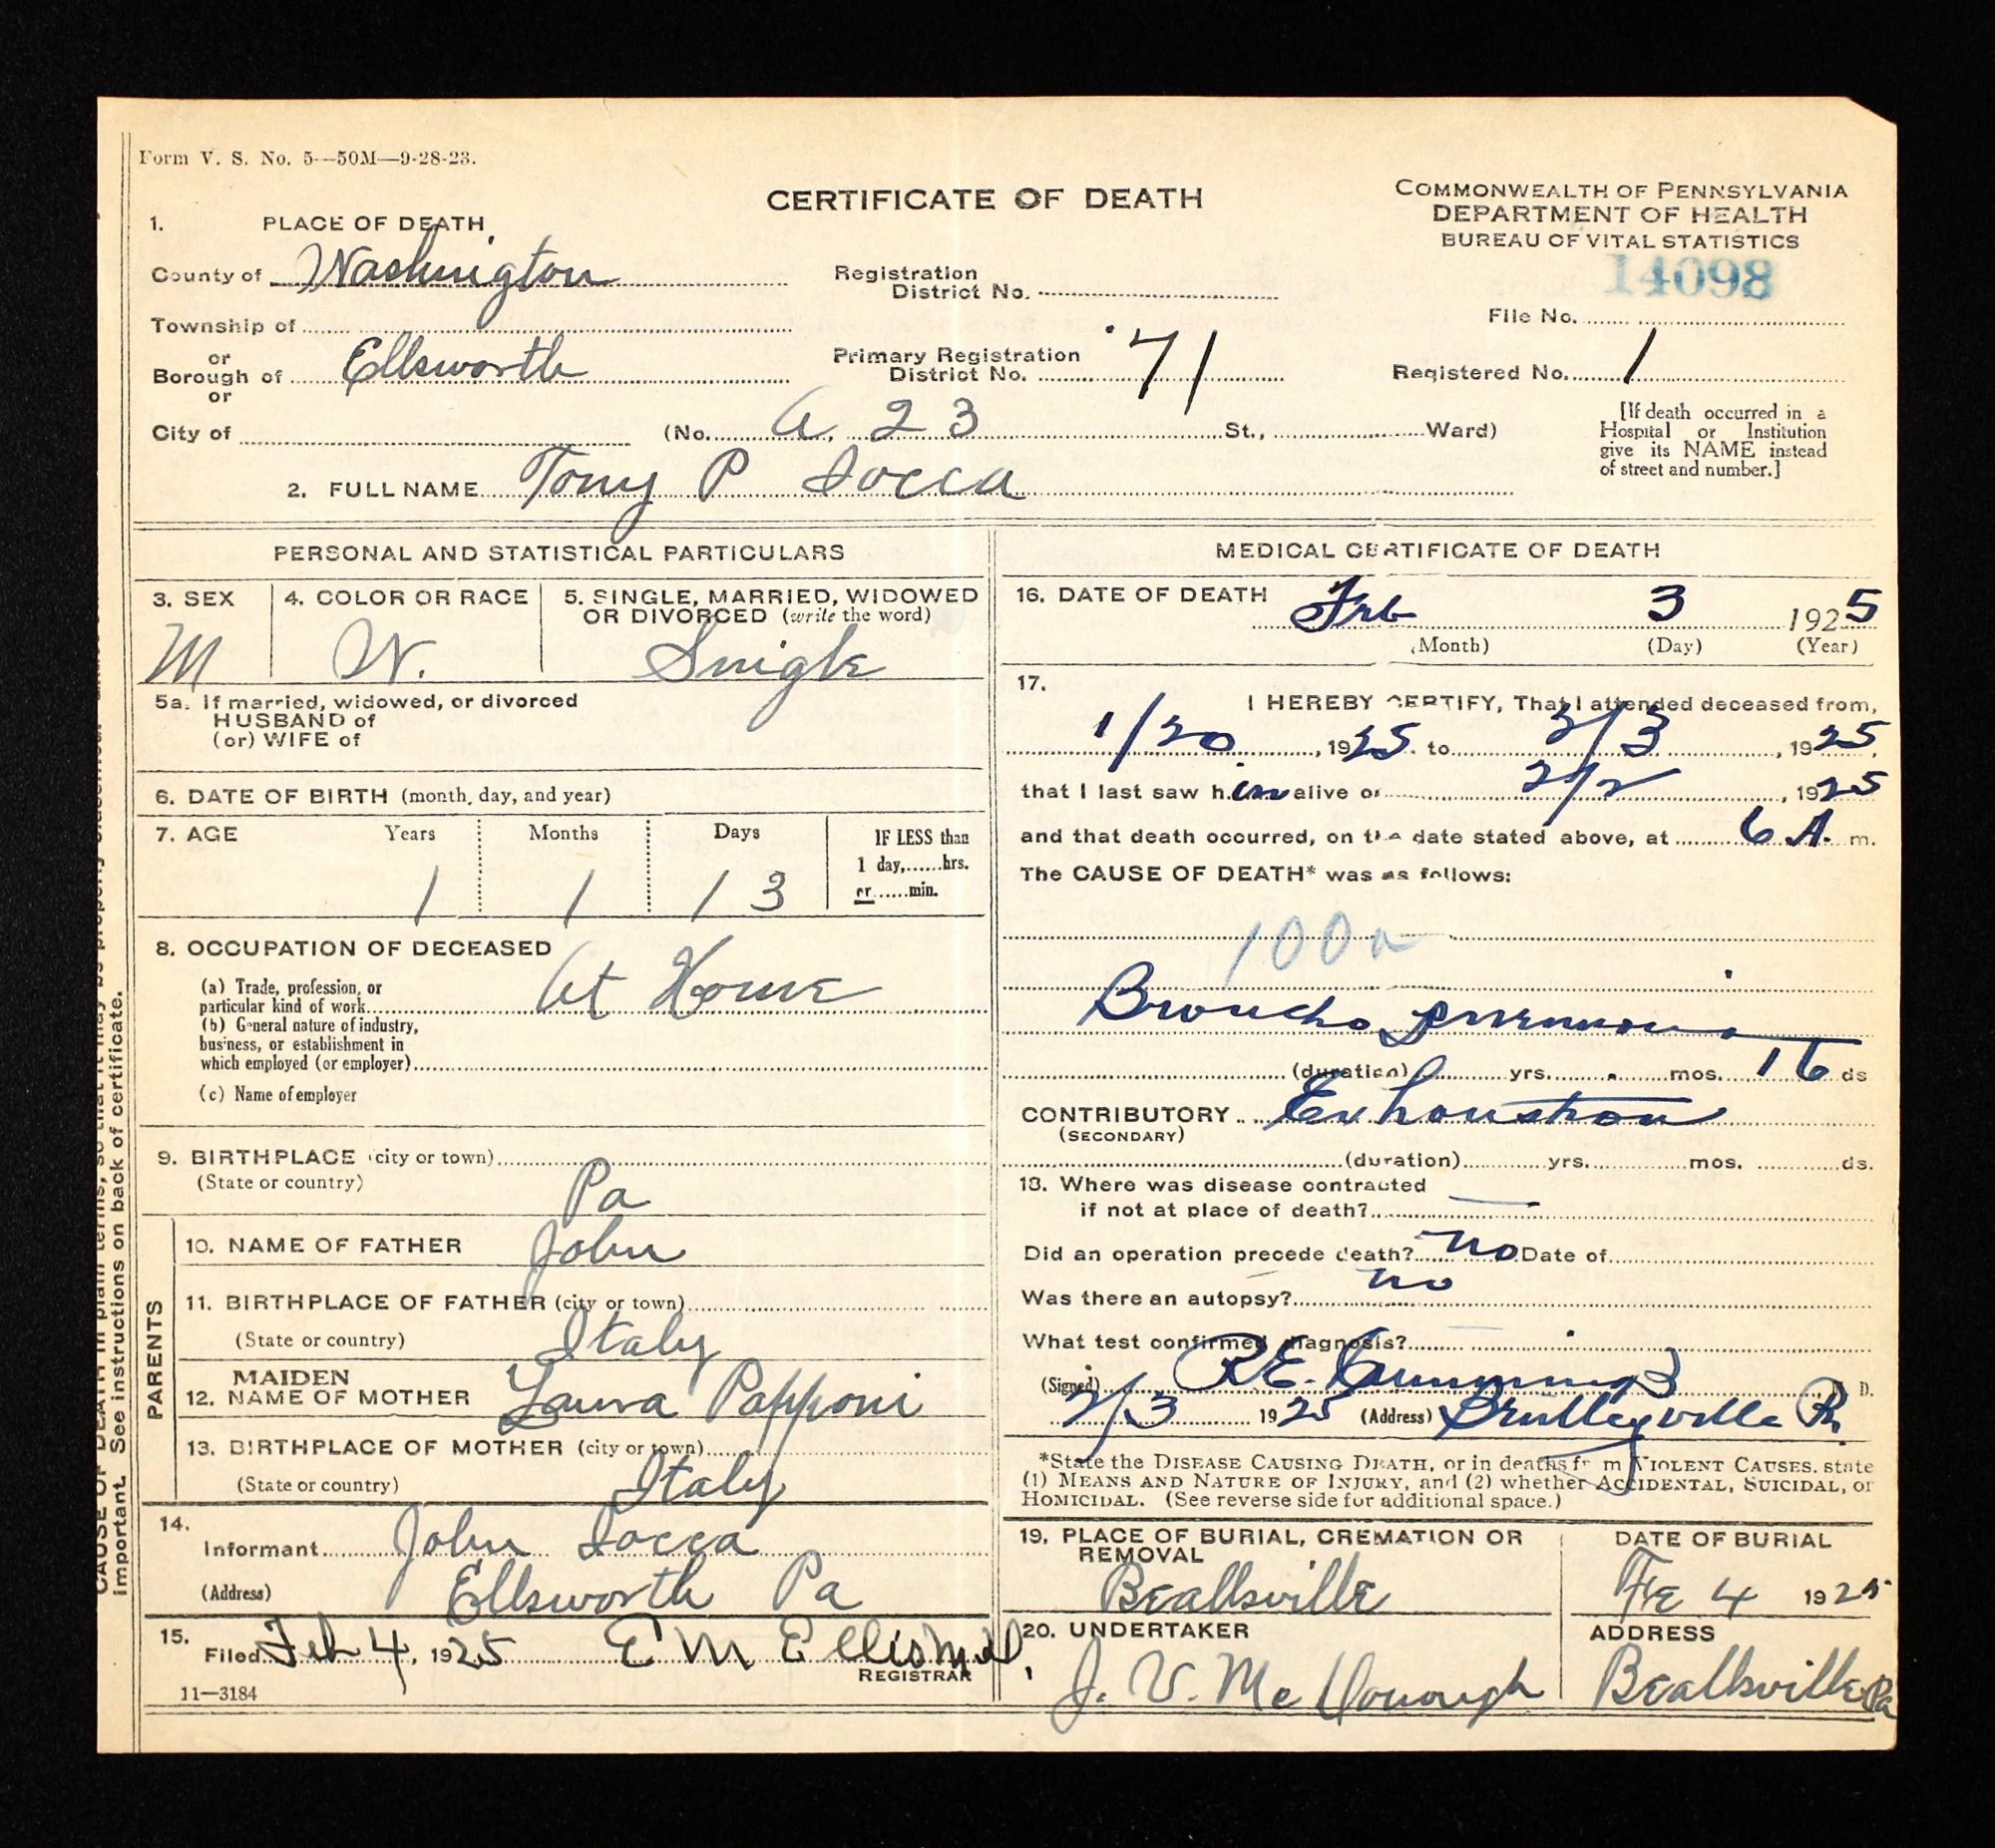 Form V. S. No. 5—50M—9-28-23.
CERTIFICATE OF DEATH
COMMONWEALTH OF PENNSYLVANIA
DEPARTMENT OF HEALTH
BUREAU OF VITAL STATISTICS
14098
1. PLACE OF DEATH
County of Washington
Registration District No.
Township of
File No.
or Borough of Ellsworth
Primary Registration District No. 71
Registered No. 1
or
City of (No. A. 23 St., Ward)
[If death occurred in a
Hospital or Institution
give its NAME instead
of street and number.]
2. FULL NAME Tony P Iocca
PERSONAL AND STATISTICAL PARTICULARS
3. SEX M
4. COLOR OR RACE W.
5. SINGLE, MARRIED, WIDOWED
OR DIVORCED (write the word)
Single
5a. If married, widowed, or divorced
HUSBAND of
(or) WIFE of
6. DATE OF BIRTH (month, day, and year)
7. AGE Years Months Days IF LESS than
1 day,......hrs.
or......min.
1 1 13
8. OCCUPATION OF DECEASED
(a) Trade, profession, or
particular kind of work At Home
(b) General nature of industry,
business, or establishment in
which employed (or employer)
(c) Name of employer
9. BIRTHPLACE (city or town)
(State or country) Pa
PARENTS
10. NAME OF FATHER John
11. BIRTHPLACE OF FATHER (city or town)
(State or country) Italy
MAIDEN
12. NAME OF MOTHER Laura Papponi
13. BIRTHPLACE OF MOTHER (city or town)
(State or country) Italy
14.
Informant John Iocca
(Address) Ellsworth Pa
15.
Filed Feb 4, 1925 E M Ellis M.D.
REGISTRAR
11—3184
MEDICAL CERTIFICATE OF DEATH
16. DATE OF DEATH
Feb 3 1925
(Month) (Day) (Year)
17.
I HEREBY CERTIFY, That I attended deceased from,
1/20, 1925. to 2/3, 1925.
that I last saw him alive on 2/2, 1925
and that death occurred, on the date stated above, at 6 A. m.
The CAUSE OF DEATH* was as follows:
100a
Broncho pneumonia
(duration) yrs. mos. ds
CONTRIBUTORY Exhaustion
(SECONDARY)
(duration) yrs. mos. ds.
18. Where was disease contracted
if not at place of death? —
Did an operation precede death? no Date of
Was there an autopsy? no
What test confirmed diagnosis?
(Signed) R.E. Cummings M. D.
2/3 1925 (Address) Bentleyville Pa
*State the DISEASE CAUSING DEATH, or in deaths from VIOLENT CAUSES, state
(1) MEANS AND NATURE OF INJURY, and (2) whether ACCIDENTAL, SUICIDAL, or
HOMICIDAL. (See reverse side for additional space.)
19. PLACE OF BURIAL, CREMATION OR
REMOVAL
Beallsville
DATE OF BURIAL
Fe 4 1925
20. UNDERTAKER
J. V. McDonough
ADDRESS
Beallsville Pa
CAUSE OF DEATH in plain terms, so that it may be properly
important. See instructions on back of certificate.